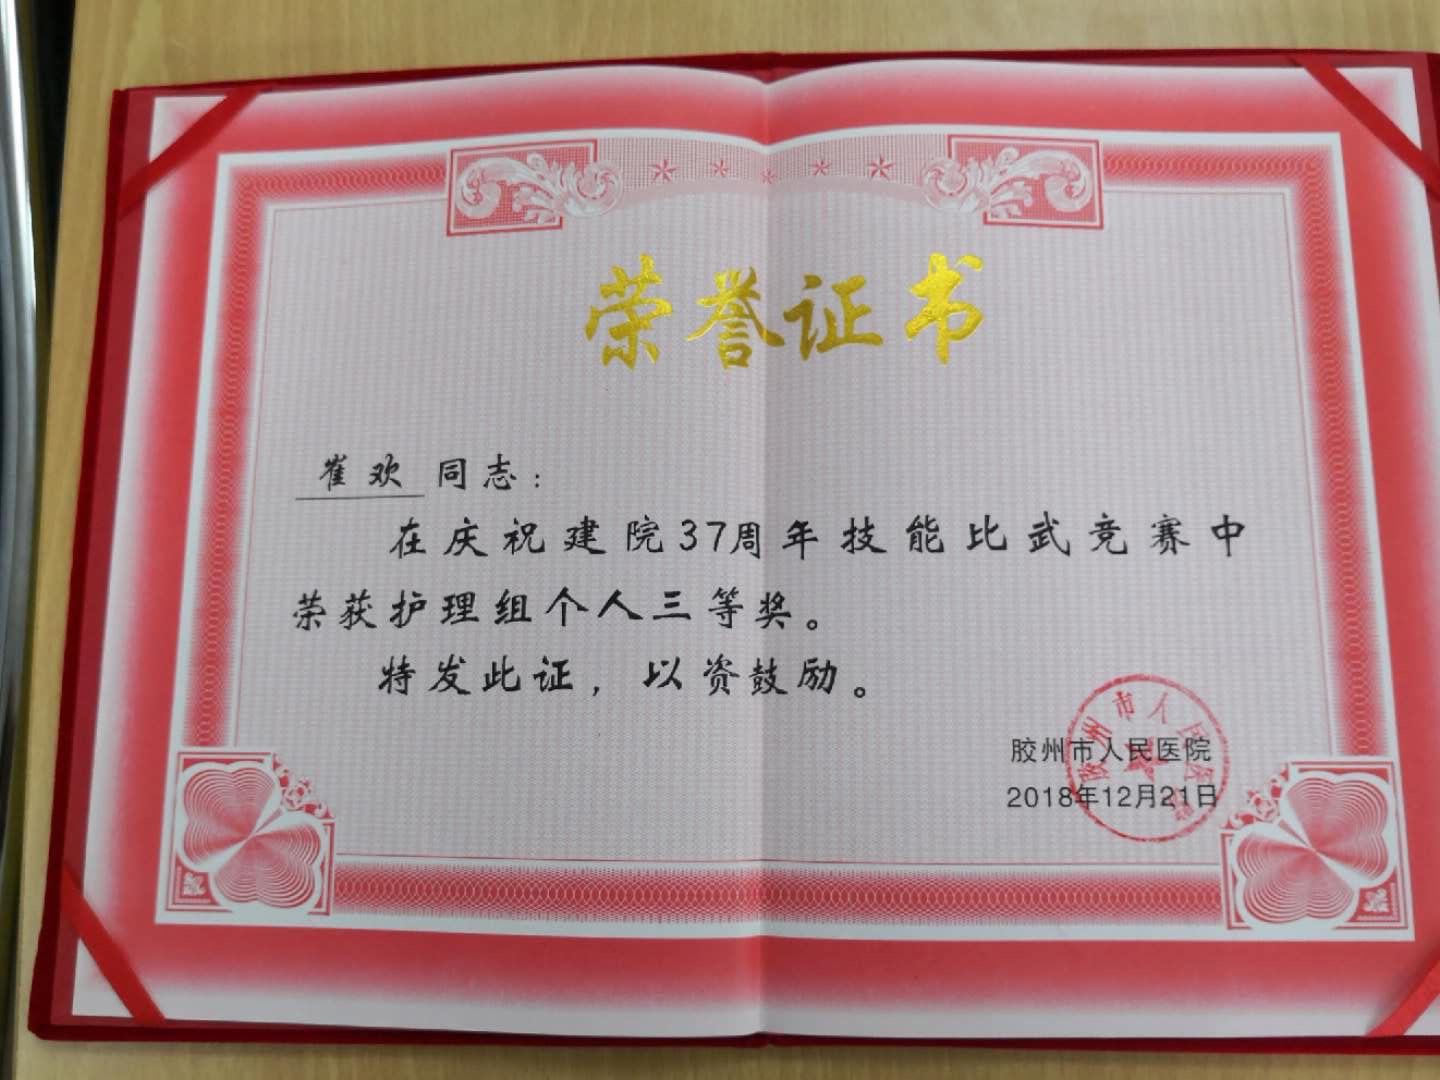 荣誉证书
崔欢 同志：
在庆祝建院37周年技能比武竞赛中
荣获护理组个人三等奖。
特发此证，以资鼓励。
胶州市人民医院
2018年12月21日
胶州市人民医院